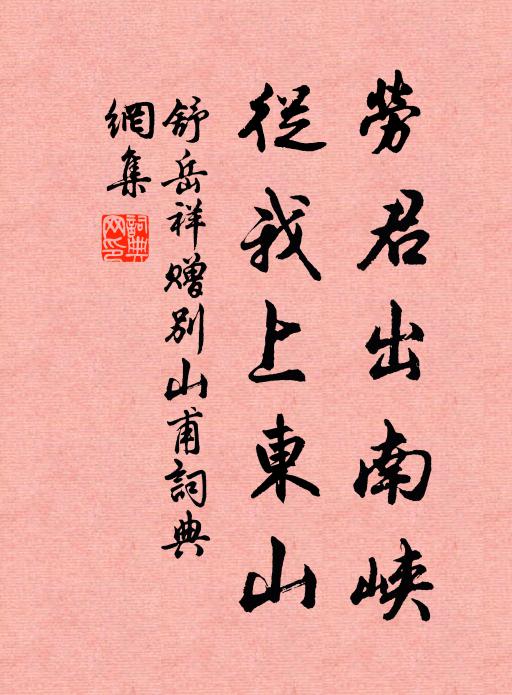 勞君出南峽
從我上東山
舒岳祥贈别山甫詞典
網集
詞典網印